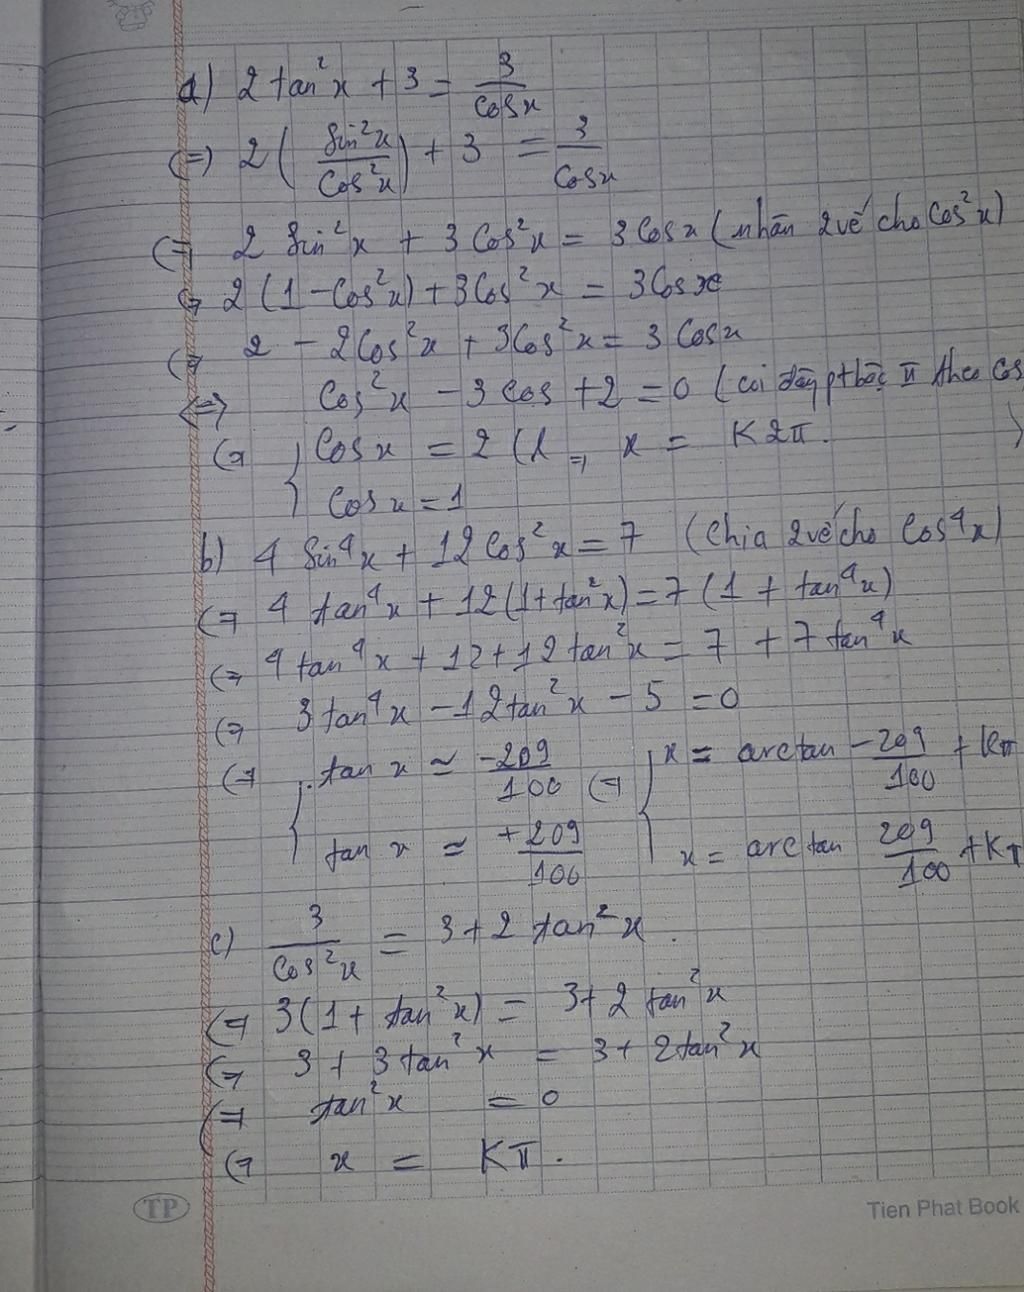 a) 2 tan²x + 3 = 3/cosx
(=) 2(sin²x/cos²x) + 3 = 3/cosx
(=) 2 sin²x + 3 cos²x = 3 cosx (nhân 2 vế cho cos²x)
(=) 2(1 - cos²x) + 3cos²x = 3cosx
(=) 2 - 2cos²x + 3cos²x = 3 cosx
<=> cos²x - 3 cos + 2 = 0 (coi đây pt bậc II theo cos
(=) { cosx = 2 (l => x = K2π. )
cosx = 1
b) 4 sin⁴x + 12 cos²x = 7 (chia 2 vế cho cos⁴x)
(=) 4 tan⁴x + 12(1+tan²x) = 7(1 + tan⁴x)
(=) 4 tan⁴x + 12 + 12 tan²x = 7 + 7 tan⁴x
(=) 3tan⁴x - 12tan²x - 5 = 0
(=) { tan x ≃ -209/100 (=) { x = arctan -209/100 + kπ
tan x ≃ +209/100 x = arctan 209/100 + Kπ
c) 3/cos²x = 3 + 2 tan²x.
(=) 3(1 + tan²x) = 3 + 2 tan²x
(=) 3 + 3 tan²x = 3 + 2tan²x
(=) tan²x = 0
(=) x = Kπ.
TP
Tien Phat Book